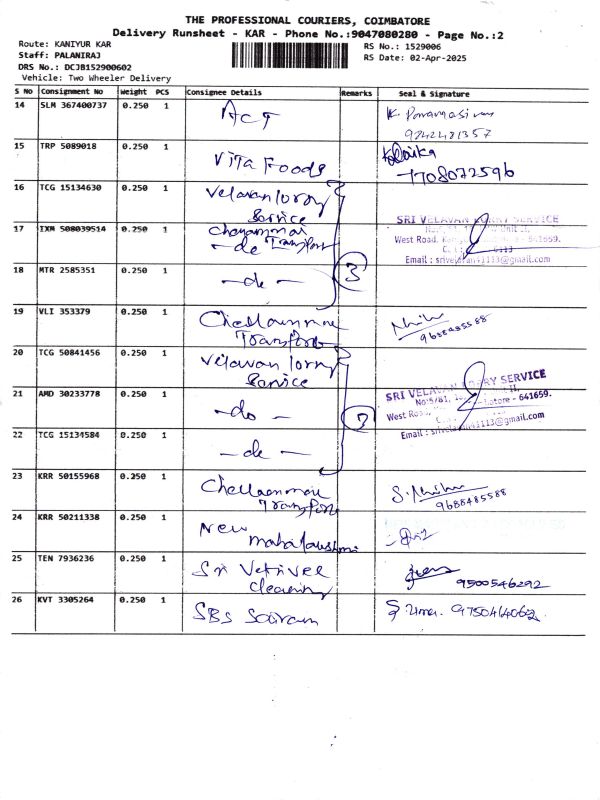 THE PROFESSIONAL COURIERS, COIMBATORE
Delivery Runsheet - KAR - Phone No.:9047080280 - Page No.:2
Route: KANIYUR KAR
Staff: PALANIRAJ
DRS No.: DCJB152900602
Vehicle: Two Wheeler Delivery
RS No.: 1529006
RS Date: 02-Apr-2025
S No Consignment No Weight PCS Consignee Details Remarks Seal & Signature
14 SLM 367400737 0.250 1 ACT
15 TRP 5089018 0.250 1 Vita Foods 7708072596
16 TCG 15134630 0.250 1 Velavan lorry Service
17 IXM 508039514 0.250 1 -do- Transport
SRI VELAVAN LORRY SERVICE
West Road, 641659.
Email : srivelavan41113@gmail.com
18 MTR 2585351 0.250 1 -do- 3
19 VLI 353379 0.250 1 Transport 9688485588
20 TCG 50841456 0.250 1 Velavan lorry Service
21 AMD 30233778 0.250 1 -do-
SRI VELAVAN LORRY SERVICE
West Road, 641659.
Email : srivelavan41113@gmail.com
22 TCG 15134584 0.250 1 -do-
23 KRR 50155968 0.250 1 Chellammai Transport 9688485588
24 KRR 50211338 0.250 1 New mahalakshmi
25 TEN 7936236 0.250 1 Sri Vetrivel Clearing 9500546292
26 KVT 3305264 0.250 1 SBS Sairam S. Uma. 9750414062